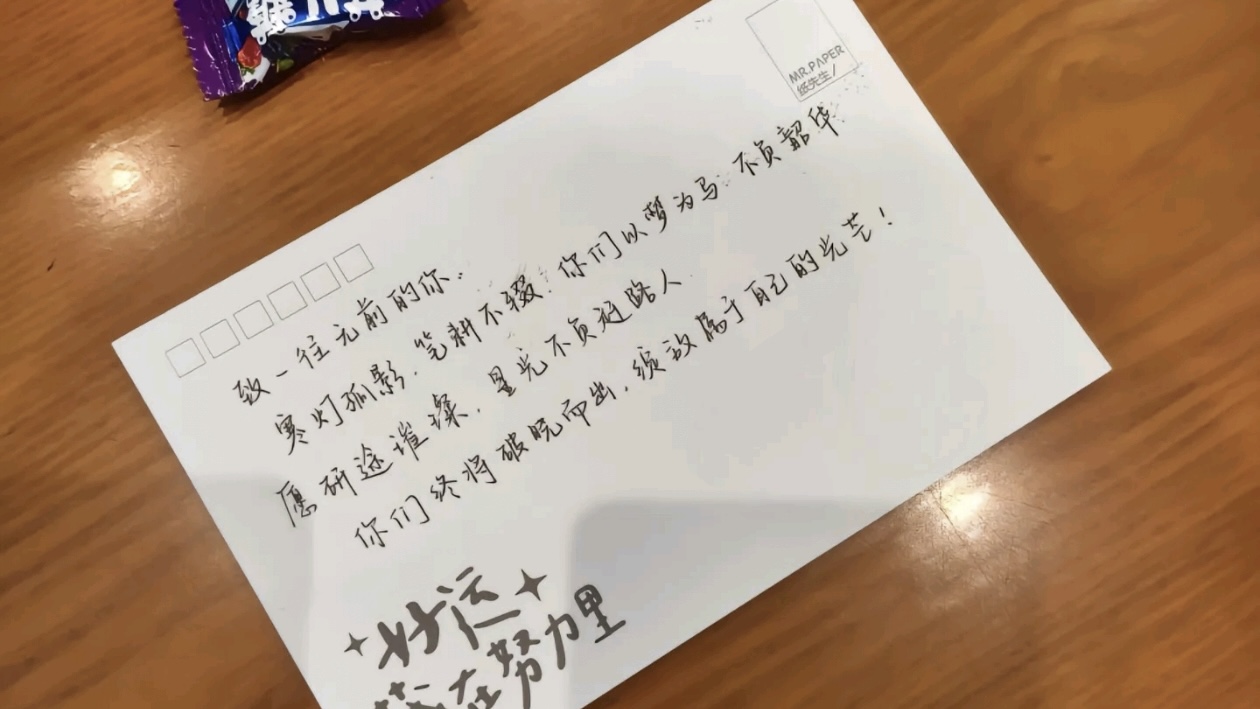 MR.PAPER
纸先生/
致一往无前的你.
寒灯孤影.笔耕不辍.你们以梦为马.不负韶华
愿研途璀璨.星光不负赶路人
你们终将破晓而出.绽放属于自己的光芒!
好运
藏在努力里